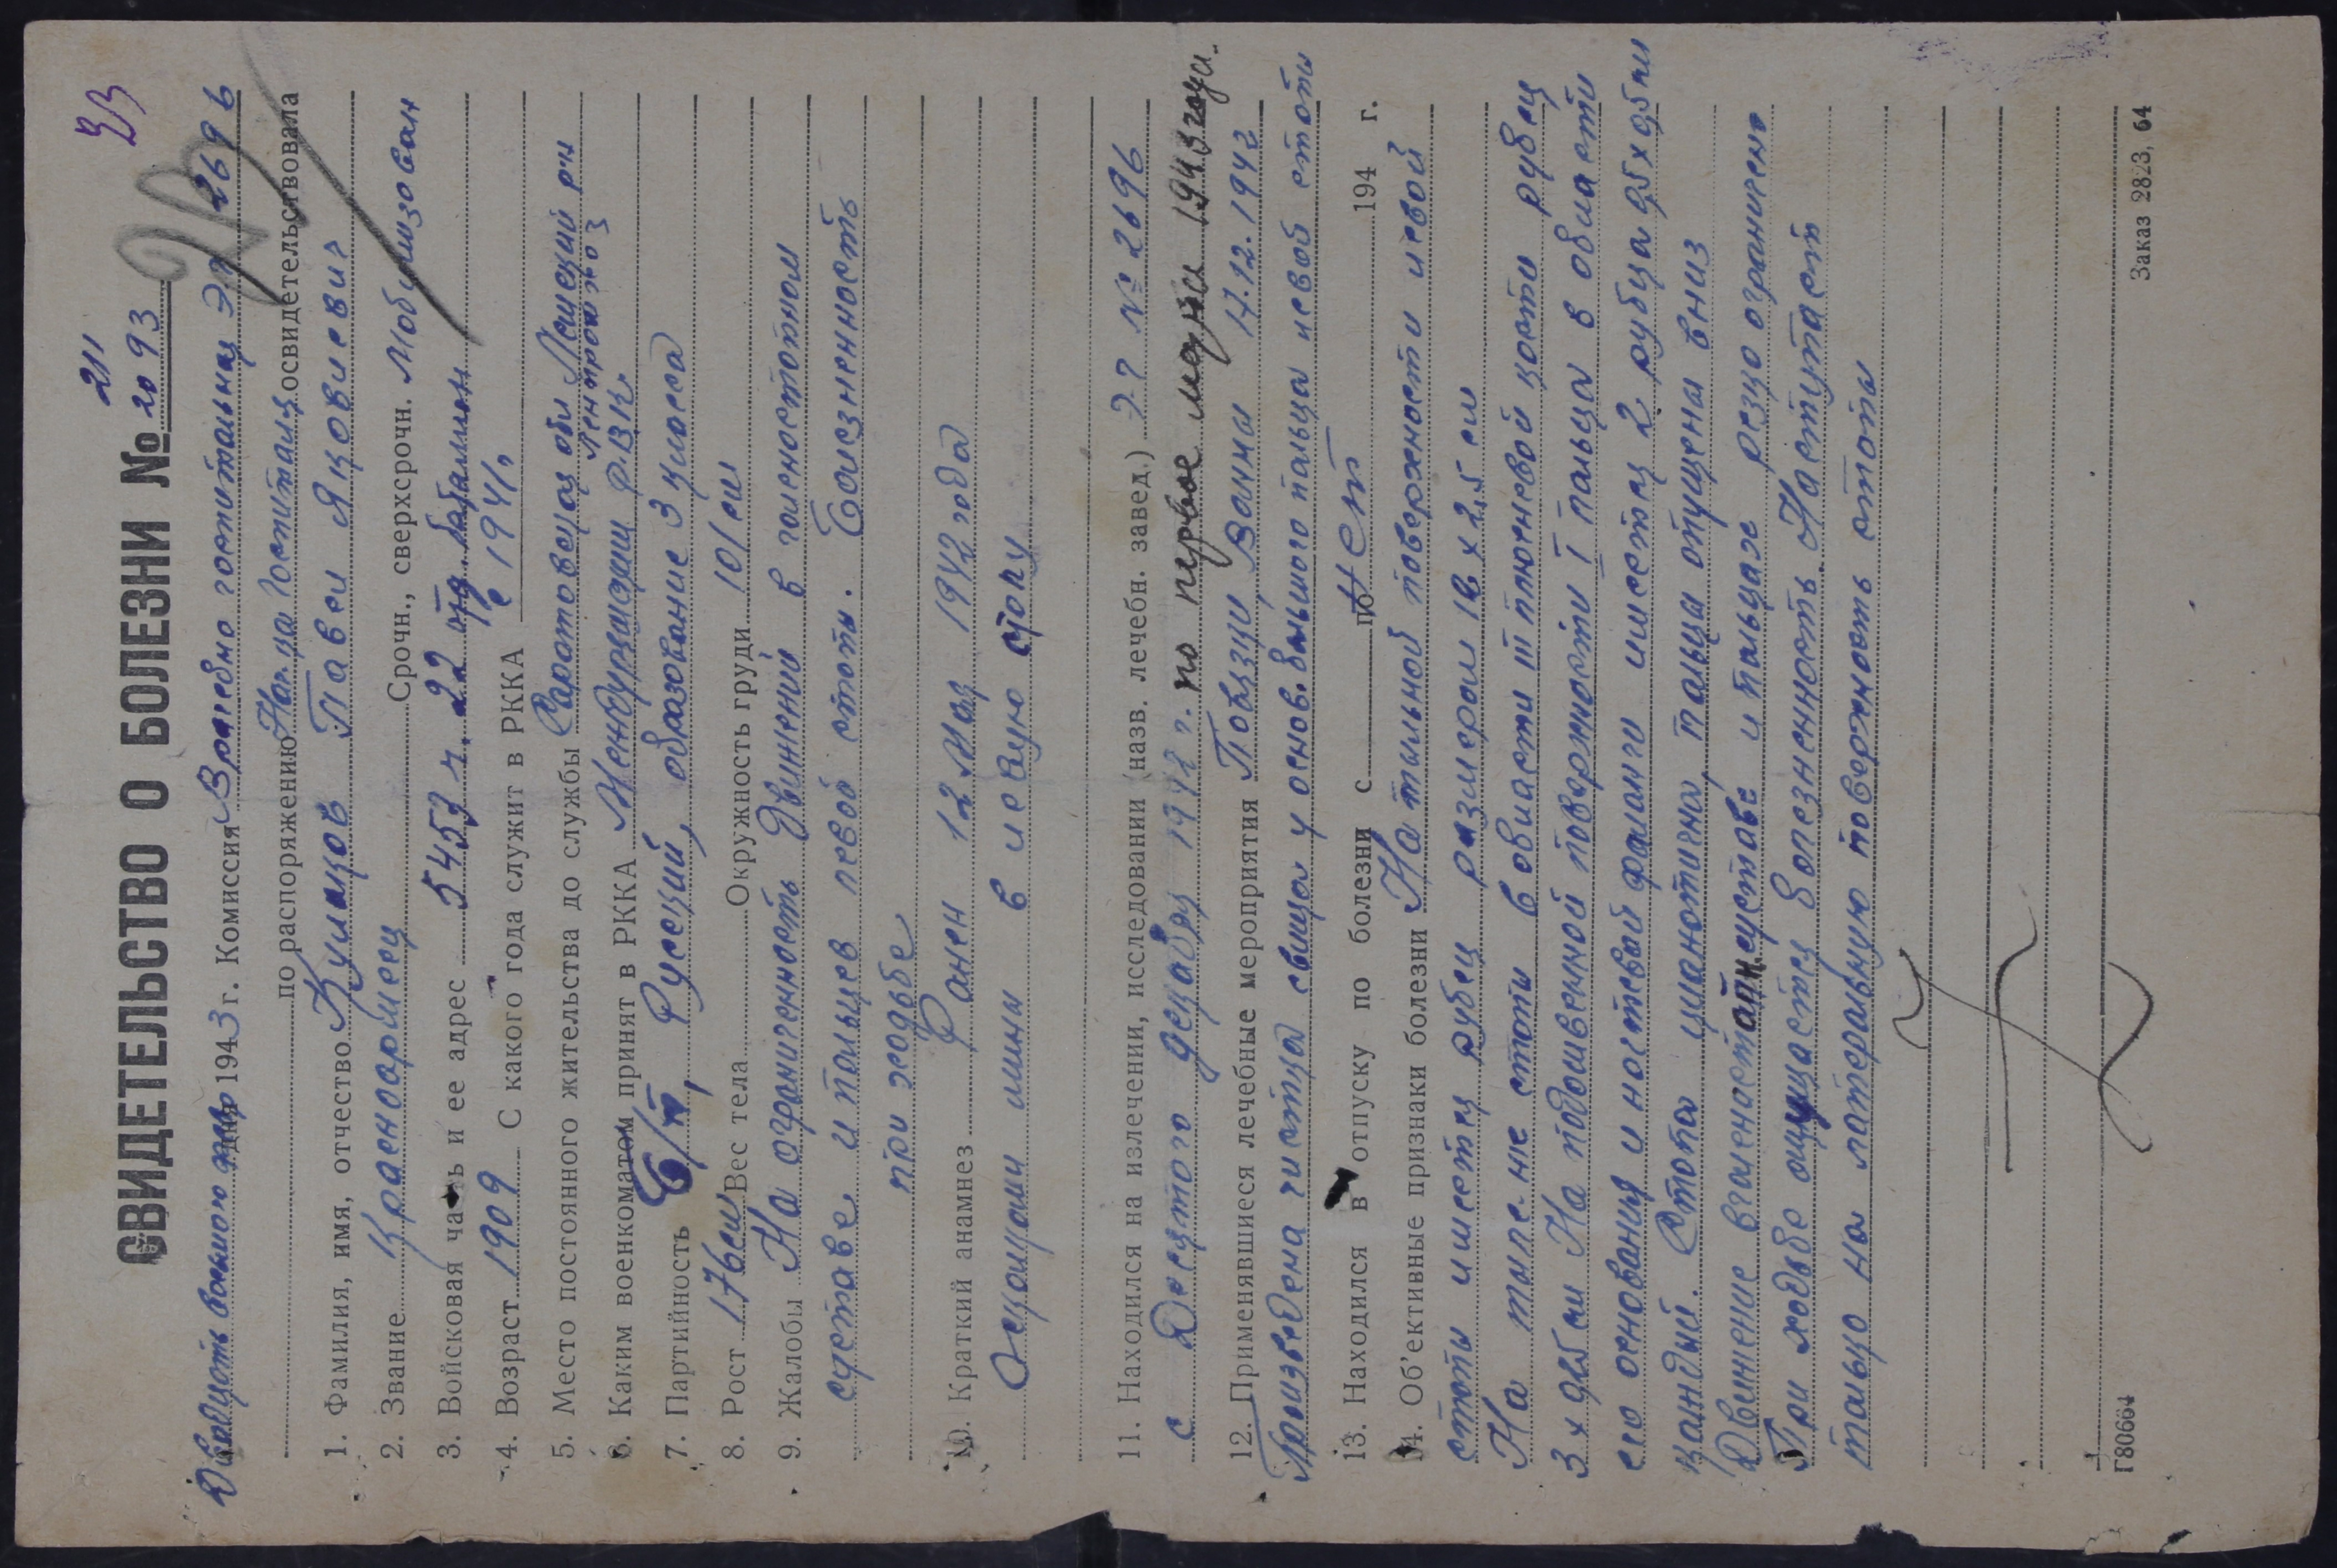 23
211
СВИДЕТЕЛЬСТВО О БОЛЕЗНИ № 2093
Двадцать восьмого дня 1943 г. Комиссия Врачебно госпитальная ЭГ 2696
по распоряжению Нач-ка Госпиталя освидетельствовала
1. Фамилия, имя, отчество Кулаков Павел Яковлевич
2. Звание Красноармеец Срочн., сверхсрочн. Мобилизован
3. Войсковая часть и ее адрес 5453 ч. 22 отд. батальон
4. Возраст 1909 С какого года служит в РККА с 1941
5. Место постоянного жительства до службы Саратовская обл
6. Каким военкоматом принят в РККА РВК
7. Партийность б/п, Русский, образование 3 класса
8. Рост 176 см Вес тела Окружность груди 101 см
9. Жалобы На ограниченность движений в голеностопном
суставе и пальцев левой стопы. Болезненность
при ходьбе
10. Краткий анамнез Ранен 12 Мая 1942 года
Осколками мины в левую стопу
11. Находился на излечении, исследовании (назв. лечебн. завед.) ЭГ № 2696
с Десятого декабря 1942 г. по первое 1943 года.
12. Применявшиеся лечебные мероприятия Повязки, Ванны 17.12.1942
Произведена чистка свища у основ. большого пальца левой стопы
13. Находился в отпуску по болезни с по Нет 194 г.
14. Об'ективные признаки болезни На тыльной поверхности левой
стопы имеется рубец размером 18 х 2,5 см
На тыле-же стопы в области III плюсневой кости рубец
3 х 0,5 см На подошвенной поверхности I пальца в области
его основания и ногтевой фаланги имеется 2 рубца 0,5 х 0,5 см
каждый. Стопа цианотична, пальцы опущены вниз
Движение в голеностопн. суставе и пальцах резко ограничено
При ходьбе ощущается болезненность. Наступает
только на латеральную поверхность стопы
Г80664
Заказ 2823, 64